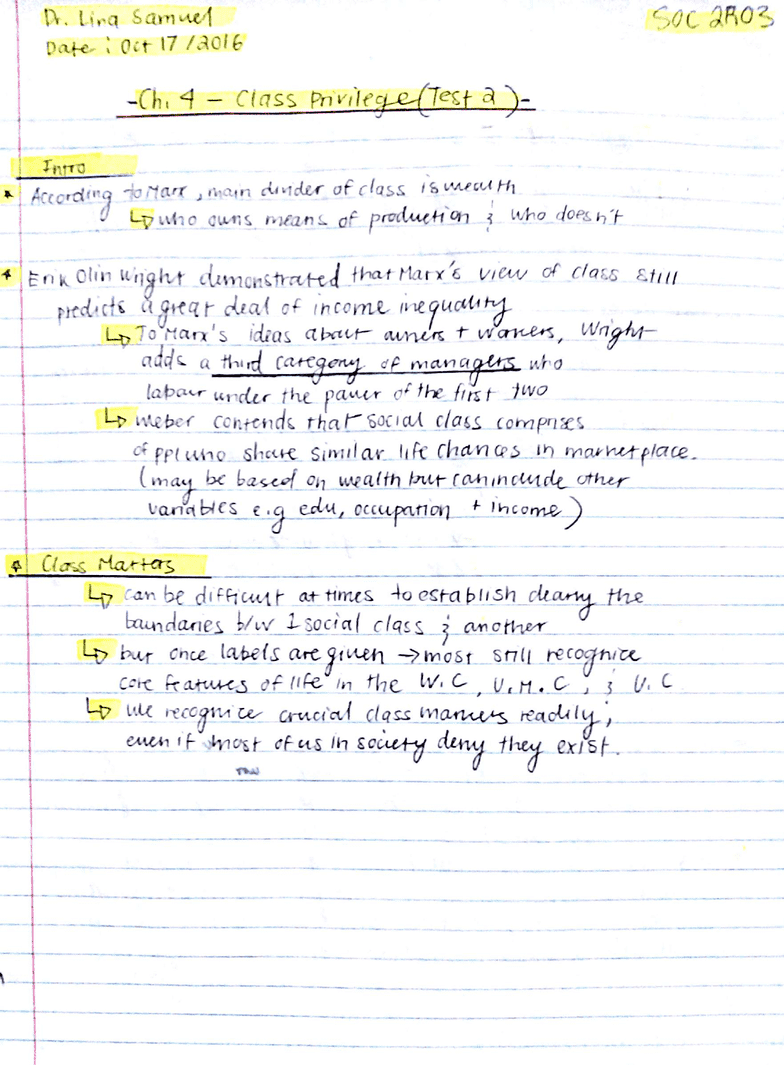 Dr. Lina Samuel
SOC 2R03
Date : Oct 17 /2016
-Ch. 4 - Class Privilege (Test 2)-
Intro
* According to Marx, main divider of class is wealth
↳ who owns means of production & who doesn't
* Erik Olin Wright demonstrated that Marx's view of class still
predicts a great deal of income inequality
↳ To Marx's ideas about owners + workers, Wright
adds a third category of managers who
labour under the power of the first two
↳ weber contends that social class comprises
of ppl who share similar life chances in marketplace.
(may be based on wealth but can include other
variables e.g edu, occupation + income)
* Class Matters
↳ can be difficult at times to establish clearly the
boundaries b/w 1 social class & another
↳ but once labels are given → most still recognize
core features of life in the W.C, U.M.C, & U.C
↳ we recognize crucial class markers readily,
even if most of us in society deny they exist.